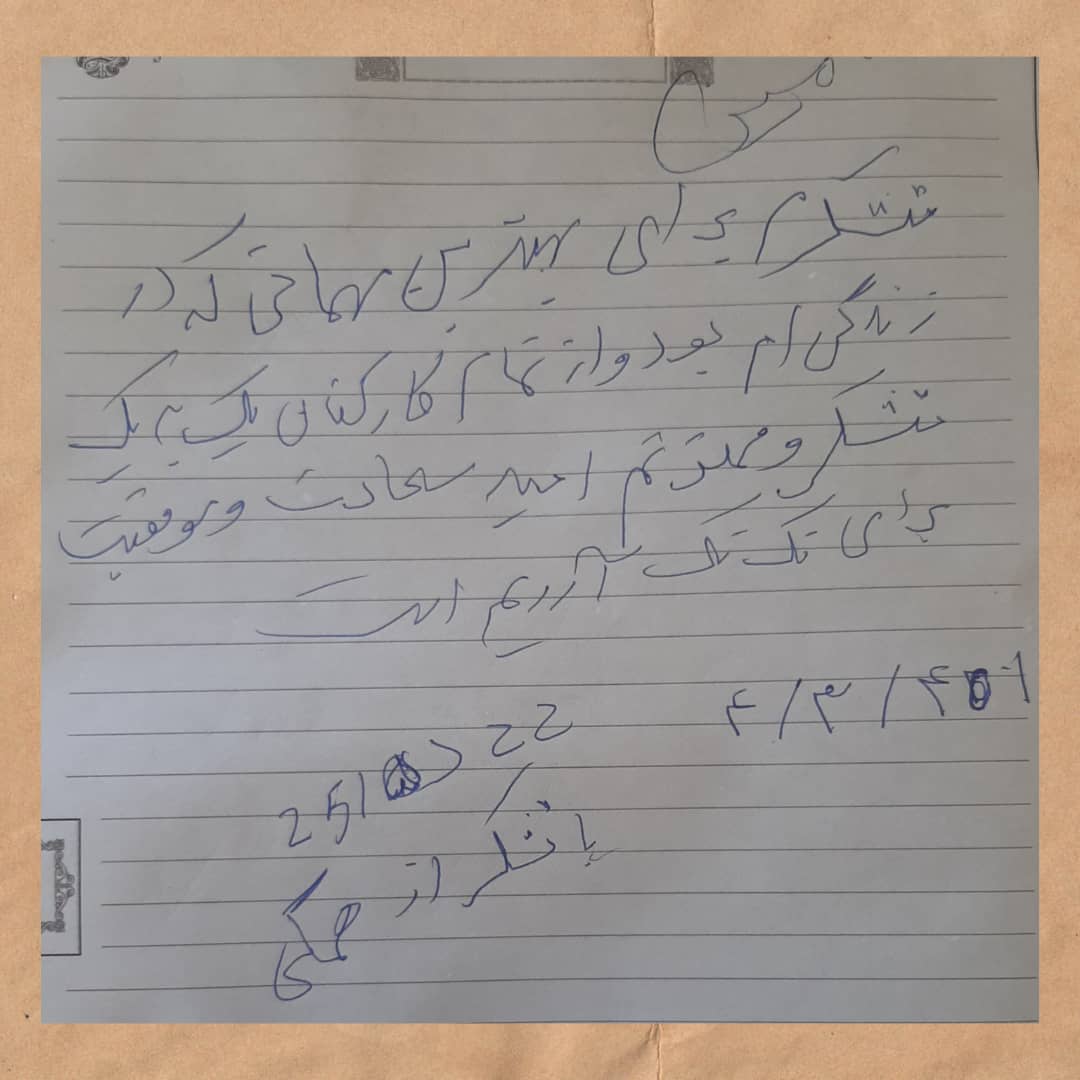 مرسی
متشکرم برای بهترین مهمانی که در
زندگی ام بود و از تمام کارکنان یک به یک
متشکر و ممنونم امید سعادت و موفقیت
برای تک تک آرزویم است
۱۴۰۱/۳/۴
با تشکر از همگی